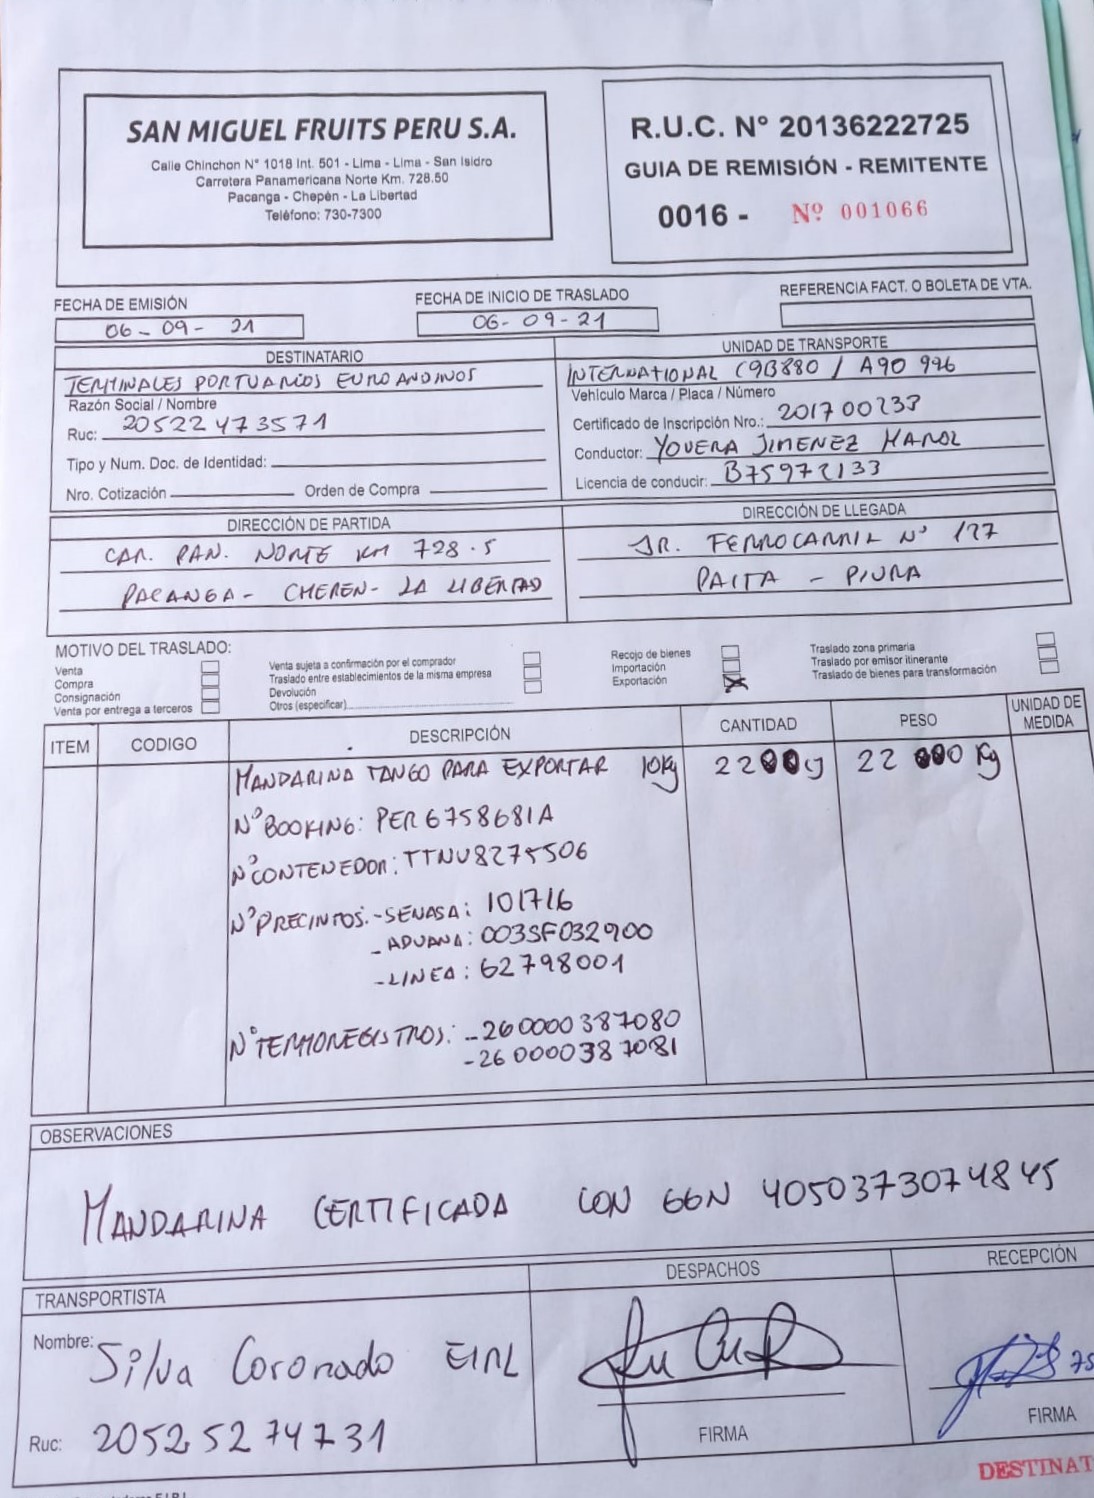 SAN MIGUEL FRUITS PERU S.A.
Calle Chinchon N° 1018 Int. 501 - Lima - Lima - San Isidro
Carretera Panamericana Norte Km. 728.50
Pacanga - Chepén - La Libertad
Teléfono: 730-7300
R.U.C. N° 20136222725
GUIA DE REMISIÓN - REMITENTE
0016 - Nº 001066
FECHA DE EMISIÓN
06-09-21
FECHA DE INICIO DE TRASLADO
06-09-21
REFERENCIA FACT. O BOLETA DE VTA.
DESTINATARIO
TERMINALES PORTUARIOS EUROANDINOS
Razón Social / Nombre
Ruc: 20522473571
Tipo y Num. Doc. de Identidad:
Nro. Cotización Orden de Compra
UNIDAD DE TRANSPORTE
INTERNATIONAL C9B880 / A90 996
Vehículo Marca / Placa / Número
Certificado de Inscripción Nro.: 201700233
Conductor: YOVERA JIMENEZ HAROL
Licencia de conducir: B75972133
DIRECCIÓN DE PARTIDA
CAR. PAN. NORTE KM 728.5
PACANGA - CHEPEN - LA LIBERTAD
DIRECCIÓN DE LLEGADA
JR. FERROCARRIL N° 127
PAITA - PIURA
MOTIVO DEL TRASLADO:
Venta
Compra
Consignación
Venta por entrega a terceros
Venta sujeta a confirmación por el comprador
Traslado entre establecimientos de la misma empresa
Devolución
Otros (especificar)
Recojo de bienes
Importación
Exportación X
Traslado zona primaria
Traslado por emisor itinerante
Traslado de bienes para transformación
ITEM CODIGO DESCRIPCIÓN CANTIDAD PESO UNIDAD DE MEDIDA
MANDARINA TANGO PARA EXPORTAR 10Kg 2200 22 000 Kg
N° BOOKING: PER6758681A
N° CONTENEDOR: TTNU8275506
N° PRECINTOS: - SENASA: 101716
- ADUANA: 003SF032900
- LINEA: 62798001
N° TERMOREGISTROS: - 260000387080
- 260000387081
OBSERVACIONES
MANDARINA CERTIFICADA CON GGN 4050373074845
TRANSPORTISTA
Nombre: Silva Coronado EIRL
Ruc: 20525274731
DESPACHOS
FIRMA
RECEPCIÓN
75
FIRMA
DESTINAT